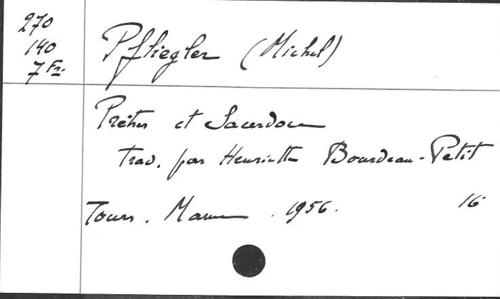 270
140
7 Fr.
Pfliegler (Michel)
Prêtres et Sacerdoce
trad. par Henriette Bourdeau-Petit
Tours. Mame. 1956. 16